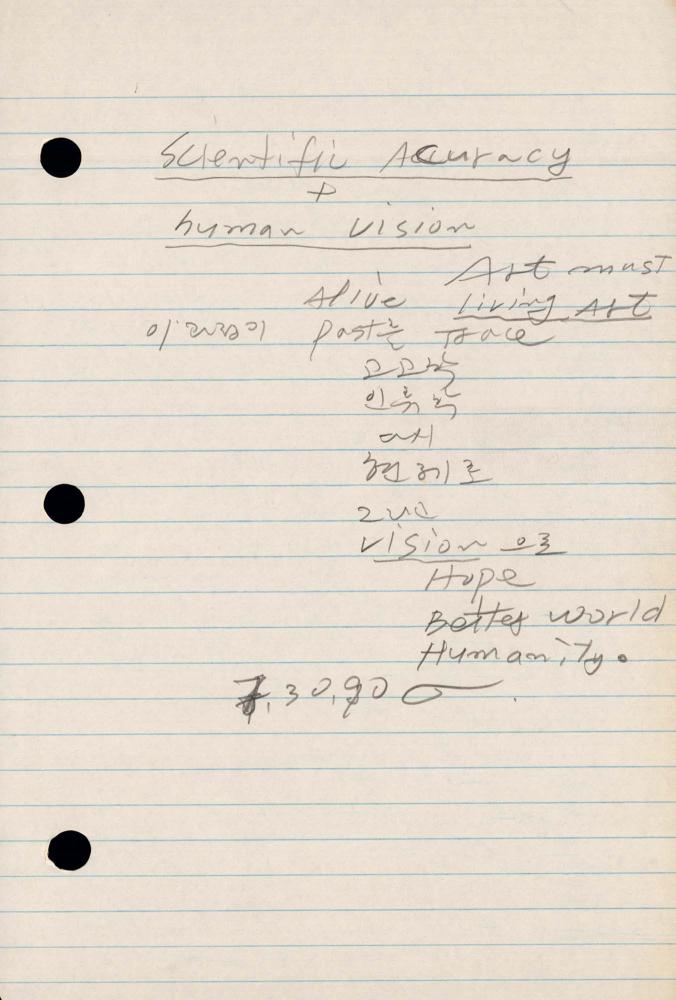 Scientific Accuracy
+
human vision
Art must
Alive living Art
past를 trace
고고학
인류학
다시
현제로
그냥
vision 으로
Hope
Better world
Humanity.
7.30,90